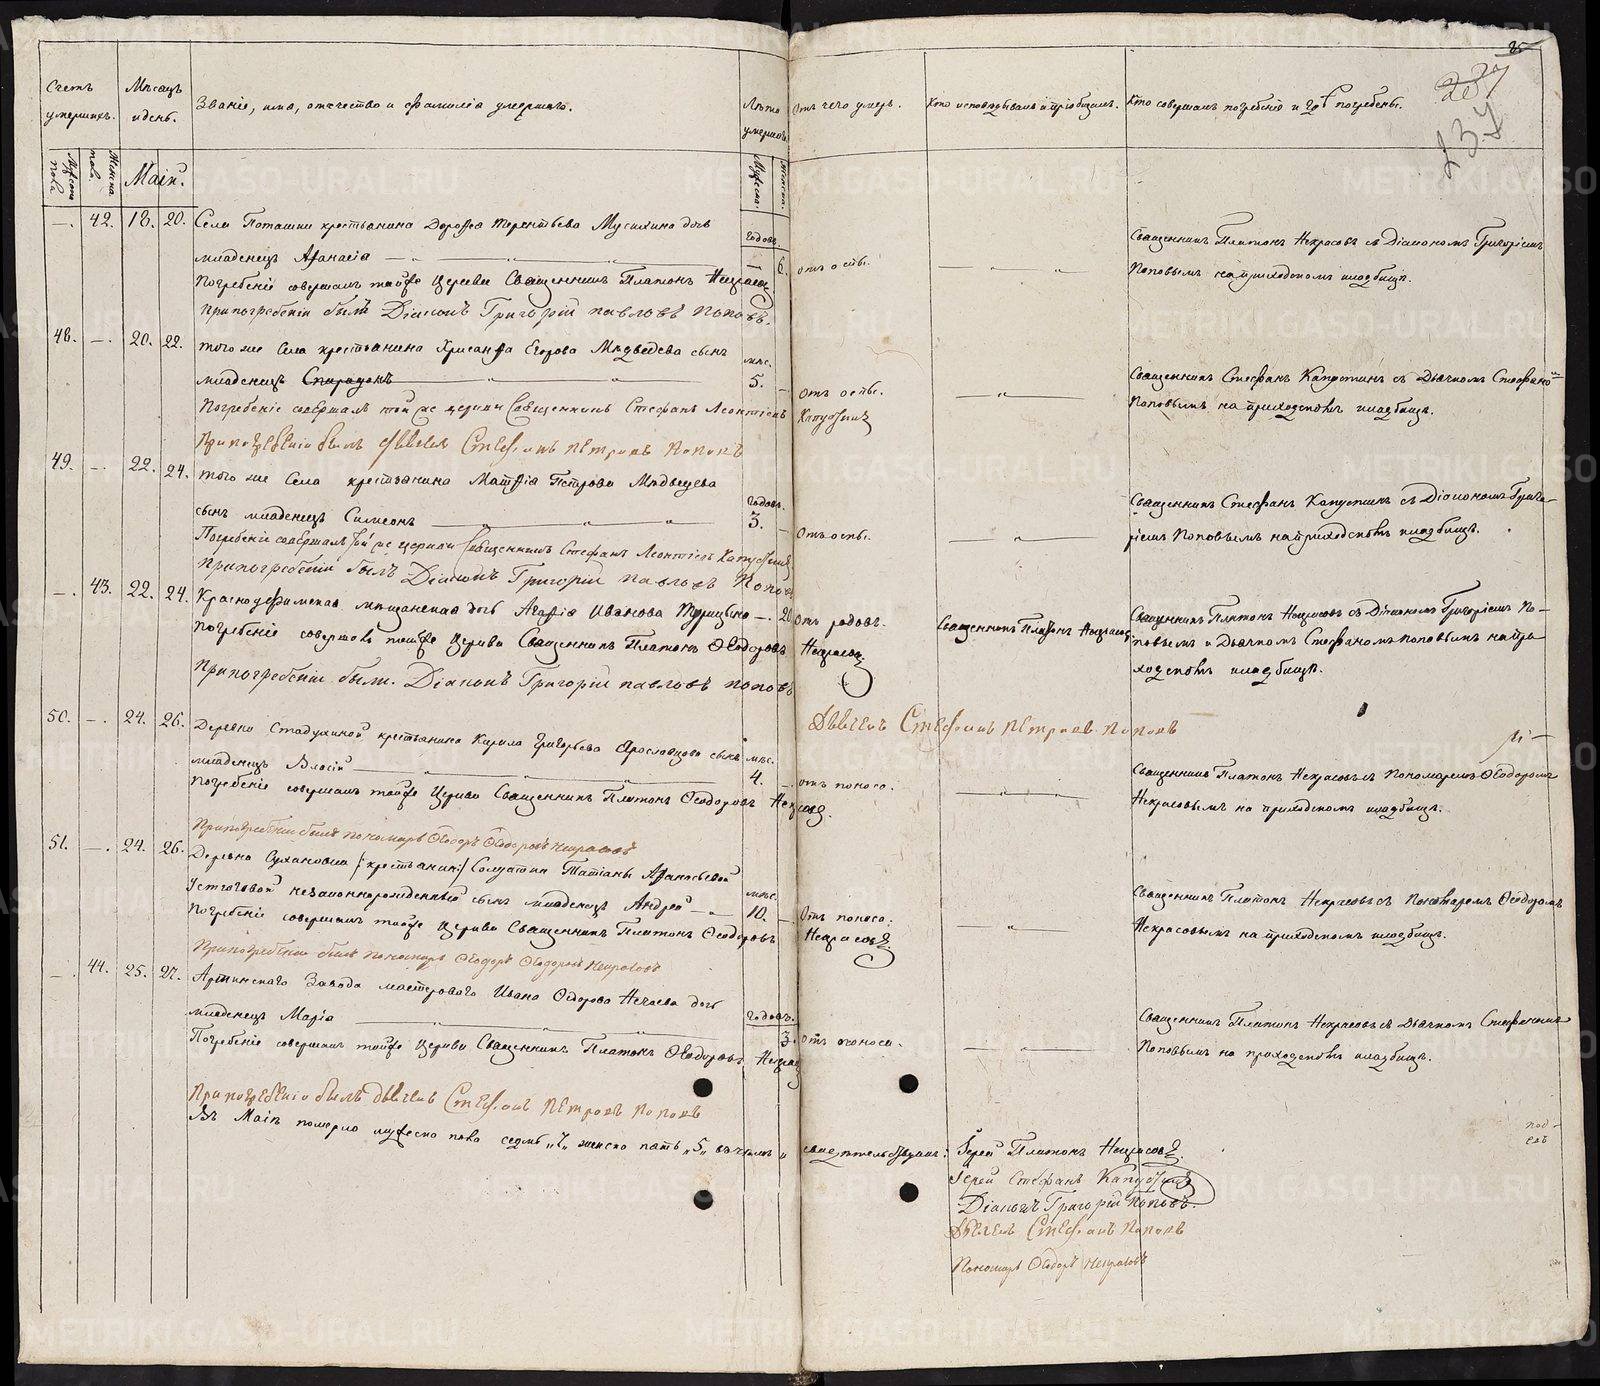 Счетъ умершихъ.
Мѣсяцъ и день.
Званіе, имя, отчество и фамилія умершихъ.
Лѣта умершихъ
Отъ чего умеръ.
Кто исповѣдывалъ и пріобщалъ.
Кто совершалъ погребеніе и гдѣ погребены.
237
Мужеска пола
Женска пола.
Маій.
Мужеска.
Женска.
—. 42. 18. 20. Села Поташки крестьянина Дорофея Терентьева Мусихина дочь
годовъ.
младенецъ Афанасія
отъ оспы.
Священникъ Платонъ Некрасовъ съ Діакономъ Григоріемъ
Поповымъ на приходскомъ кладбищѣ.
Погребеніе совершалъ тойже Церкви Священникъ Платонъ Некрасовъ
При погребеніи былъ Діаконъ Григорій Павловъ Поповъ.
48. —. 20. 22. того же Села крестьянина Хрисанфа Егорова Медведева сынъ
мѣс.
младенецъ Спиридонъ 5. — отъ оспы.
Священникъ Стефанъ Капустинъ съ Дьячкомъ Стефаномъ
Поповымъ на приходскомъ кладбищѣ.
Погребеніе совершалъ той же церкви Священникъ Стефанъ Леонтіевъ Капустинъ
При погребеніи былъ дьячекъ Стефанъ Петровъ Поповъ
49. —. 22. 24. того же Села крестьянина Матфія Петрова Медведева
годовъ.
сынъ младенецъ Симеонъ 3. — Отъ оспы.
Священникъ Стефанъ Капустинъ съ Діакономъ Григо-
ріемъ Поповымъ на приходскомъ кладбищѣ.
Погребеніе совершалъ той же церкви Священникъ Стефанъ Леонтіевъ Капустинъ
При погребеніи былъ Діаконъ Григорій Павловъ Поповъ
—. 43. 22. 24. Красноуфимская мещанская дочь Агафія Иванова — 20 отъ родовъ.
Священникъ Платонъ Некрасовъ
Священникъ Платонъ Некрасовъ съ Діакономъ Григоріемъ По-
повымъ и Дьячкомъ Стефаномъ Поповымъ на при-
ходскомъ кладбищѣ.
Погребеніе совершалъ тойже Церкви Священникъ Платонъ Ѳеодоровъ Некрасовъ
При погребеніи были. Діаконъ Григорій Павловъ Поповъ
Дьячекъ Стефанъ Петровъ Поповъ
50. —. 24. 26. Деревни Стадухиной крестьянина Кирила Григорьева Ярославцова сынъ мѣс.
младенецъ Власій 4. отъ поноса.
Священникъ Платонъ Некрасовъ съ Пономаремъ Ѳеодоромъ
Некрасовымъ на приходскомъ кладбищѣ.
Погребеніе совершалъ тойже Церкви Священникъ Платонъ Ѳеодоровъ Некрасовъ.
При погребеніи былъ пономарь Ѳеодоръ Ѳеодоровъ Некрасовъ
51. —. 24. 26. Деревни Сухановки /:крестьянин:/ Солдатки Татіаны Афанасьевой
мѣс.
Устюговой незаконнорожденный сынъ младенецъ Андрей 10. — Отъ поноса.
Священникъ Платонъ Некрасовъ съ Пономаремъ Ѳеодоромъ
Некрасовымъ на приходскомъ кладбищѣ.
Погребеніе совершалъ тойже Церкви Священникъ Платонъ Ѳеодоровъ Некрасовъ.
При погребеніи былъ пономарь Ѳеодоръ Ѳеодоровъ Некрасовъ
—. 44. 25. 27. Артинскаго Завода мастероваго Ивана Ѳедорова Нечаева дочь
годовъ.
младенецъ Марія 3. отъ поноса.
Священникъ Платонъ Некрасовъ съ Дьячкомъ Стефаномъ
Поповымъ на приходскомъ кладбищѣ.
Погребеніе совершалъ тойже Церкви Священникъ Платонъ Ѳеодоровъ Некрасовъ
При погребеніи былъ дьячекъ Стефанъ Петровъ Поповъ
Въ Маіѣ померло мужеска пола седмь „7„ женска пять „5„
свидетельствуемъ: Іерей Платонъ Некрасовъ.
Іерей Стефанъ Капустинъ
Діаконъ Григорій Поповъ.
Дьячекъ Стефанъ Поповъ
Пономарь Ѳеодоръ Некрасовъ
METRIKI.GASO-URAL.RU